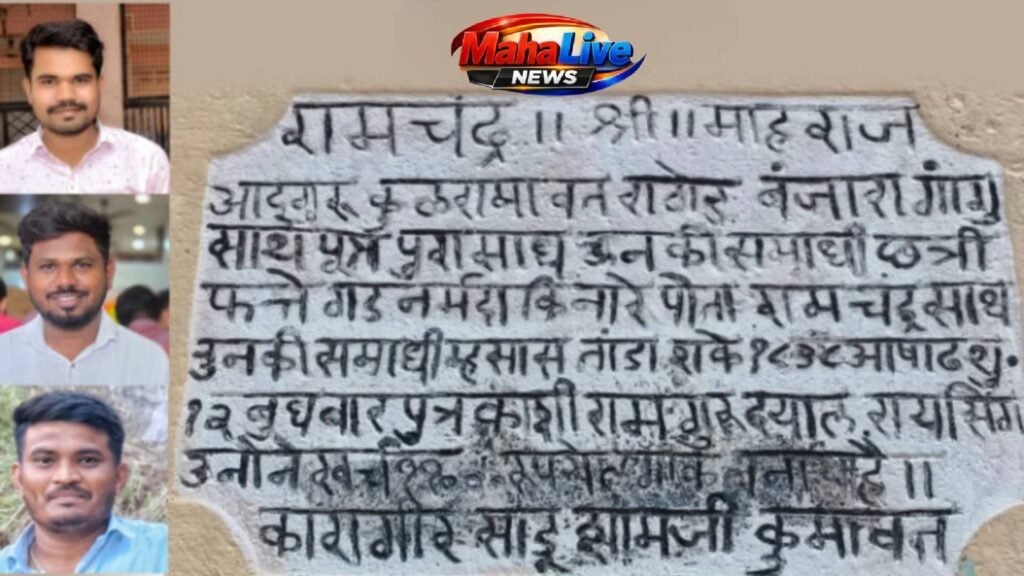 MahaLive
NEWS
रामचंद्र ॥ श्री ॥ माहराज
आद्गुरू कुळरामावत राठोड बंजारा गांगु
साध पूत्र पुरासाध ऊनकी समाधी छत्री
फत्ते गड नर्मदा किनारे पोता रामचंद्र साध
उनकी समाधी म्हसास तांडा शके १८३८ आषाढ शु.
१३ बुधवार पुत्र काशीराम गुरूदयाल रायसिंग
उनोने खर्च रुपये
कारागीर साडू झामजी कुमावत